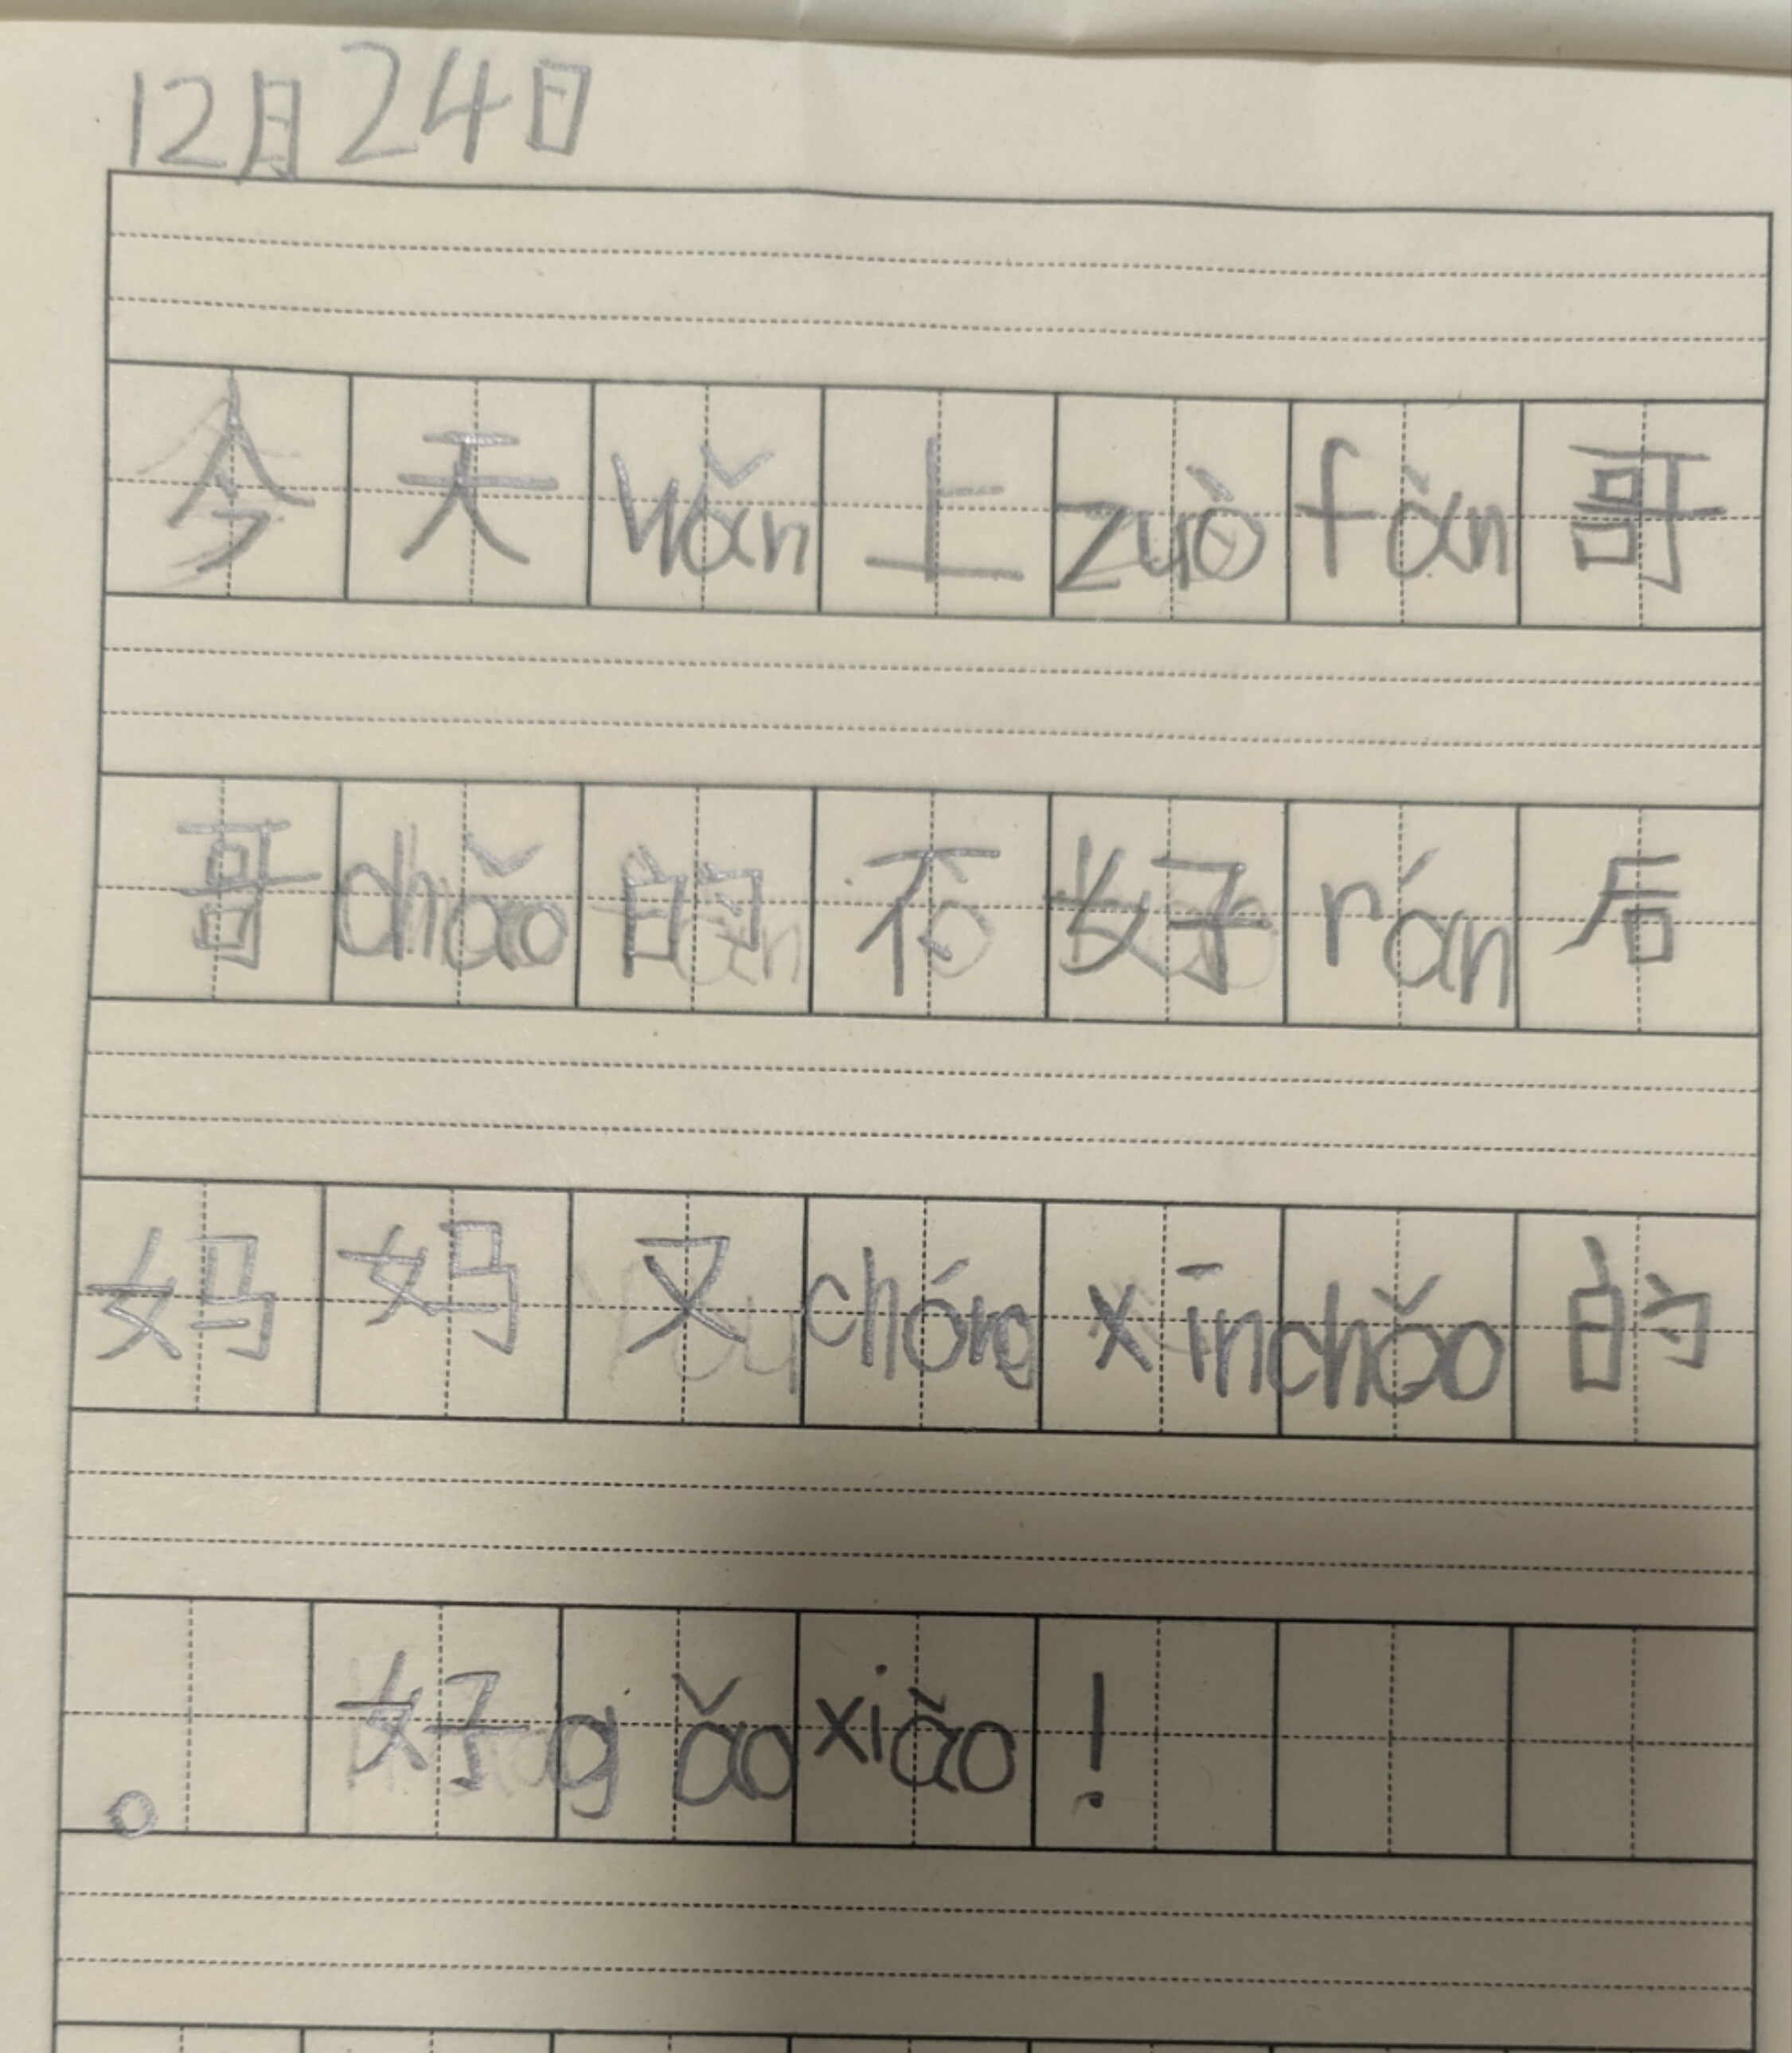 12月24日
今天wǎn上zuòfàn哥
哥chǎo的不好rán后
妈妈又chóngxīnchǎo的
。好gǎoxiào!